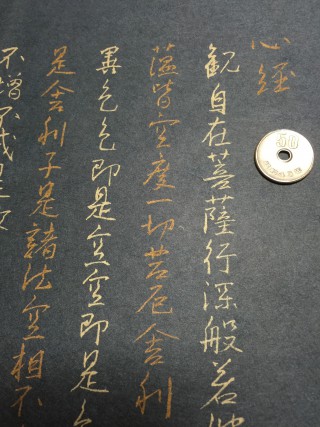 心経
観自在菩薩行深般若
蘊皆空度一切苦厄舎利
異色色即是空空即是
是舎利子是諸法空相不
不増不減是故
50